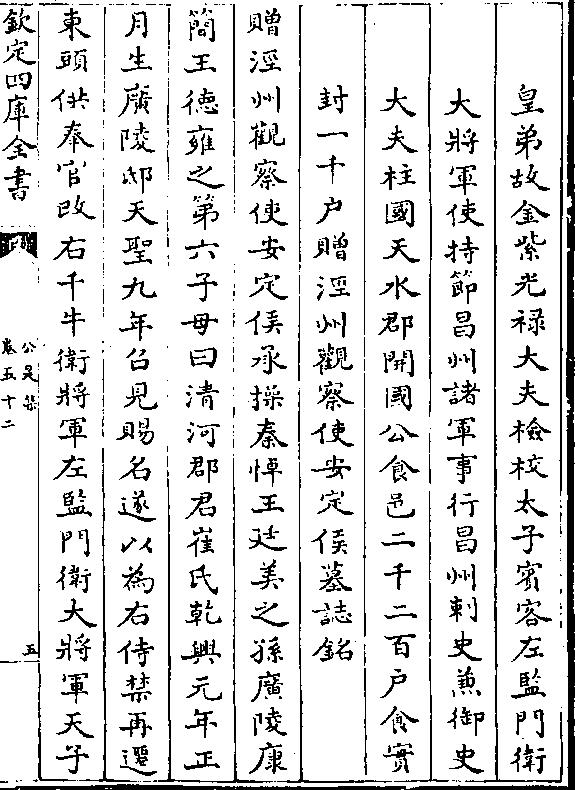 皇弟故金紫光禄大夫檢校太子賓客左監門衛
大將軍使持節昌州諸軍事行昌州刺史兼御史
大夫柱國天水郡開國公食邑二千二百户食實
封一千户贈涇州觀察使安定侯墓誌銘
贈涇州觀察使安定侯承操秦悼王廷美之孫廣陵康
簡王德雍之第六子母曰清河郡君崔氏乾興元年正
月生廣陵邸天聖九年召見賜名遂以為右侍禁再遷
東頭供奉官改右千牛衛將軍左監門衛大將軍天子
欽定四庫全書
公是集
卷五十二
五